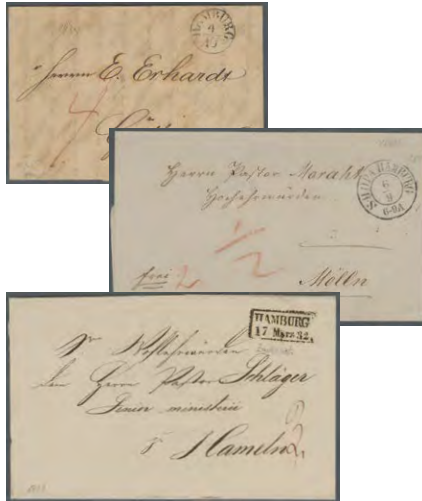 HAMBURG
Herrn E. Erhardt
4
Herrn Pastor Moraht
Hochehrwürden
HAMBURG
6
9
6-9A
1/2
frei
Mölln
HAMBURG
17 März 32
Sr Wohlehrwürden
dem Herrn Pastor Schläger
Senior ministerii
Hameln